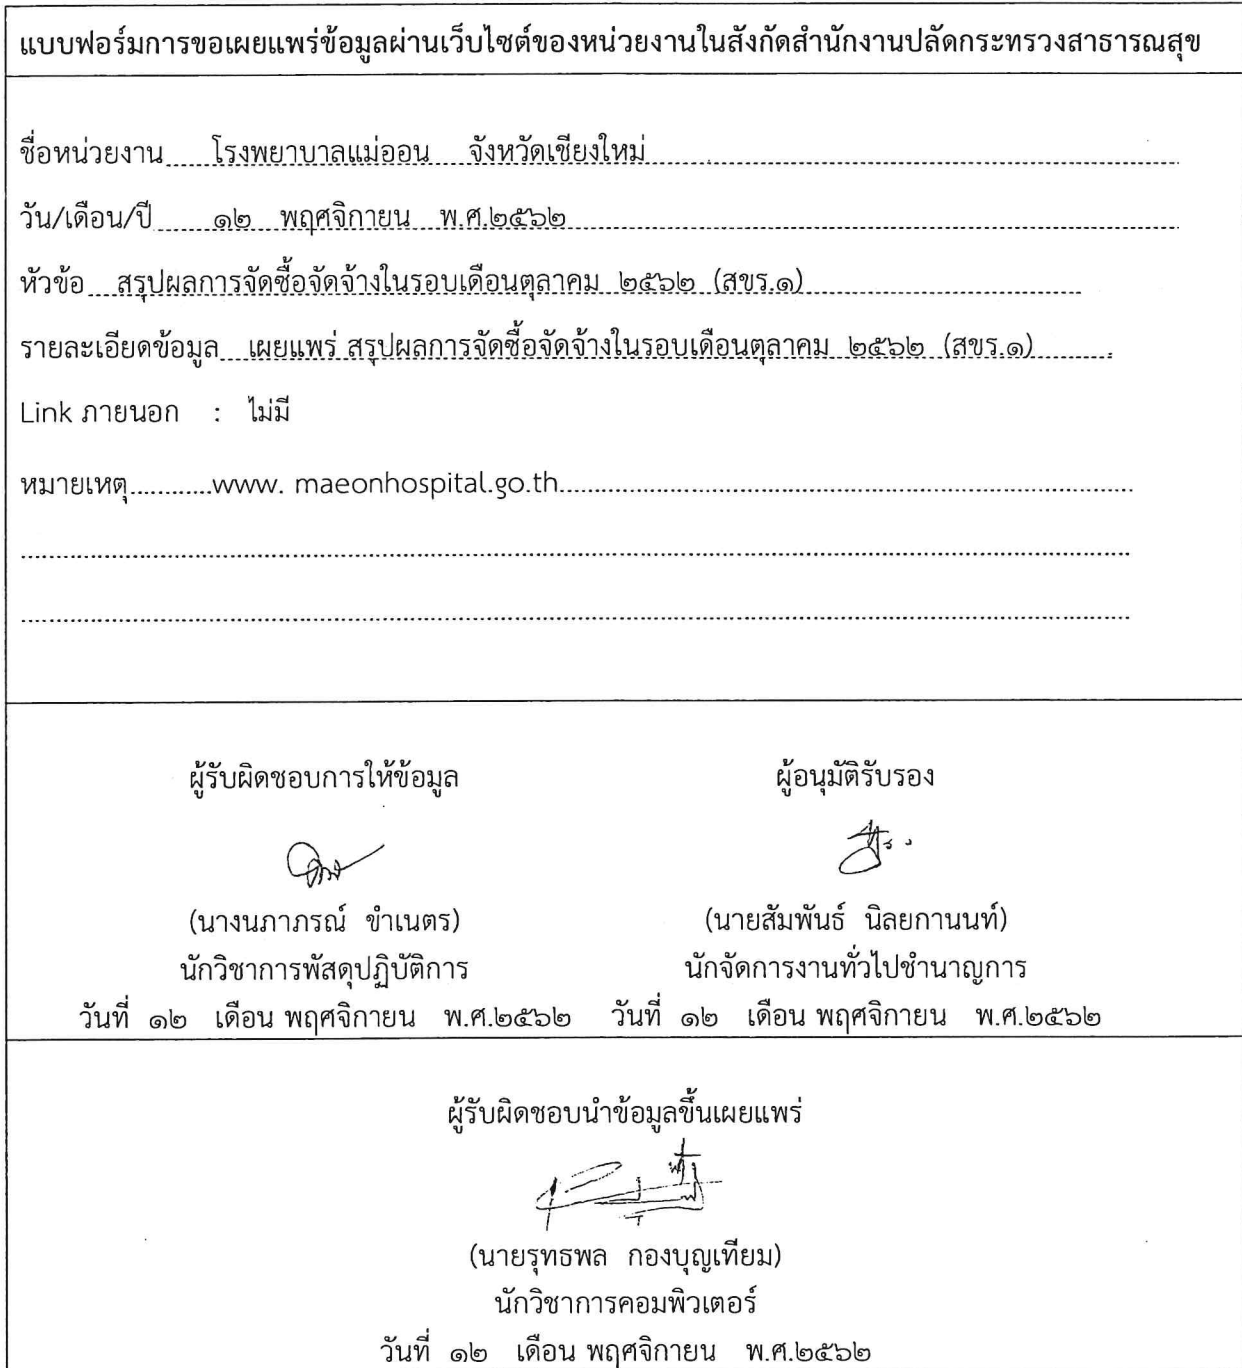 แบบฟอร์มการขอเผยแพร่ข้อมูลผ่านเว็บไซต์ของหน่วยงานในสังกัดสำนักงานปลัดกระทรวงสาธารณสุข
ชื่อหน่วยงาน โรงพยาบาลแม่ออน จังหวัดเชียงใหม่
วัน/เดือน/ปี ๑๒ พฤศจิกายน พ.ศ.๒๕๖๒
หัวข้อ สรุปผลการจัดซื้อจัดจ้างในรอบเดือนตุลาคม ๒๕๖๒ (สขร.๑)
รายละเอียดข้อมูล เผยแพร่ สรุปผลการจัดซื้อจัดจ้างในรอบเดือนตุลาคม ๒๕๖๒ (สขร.๑)
Link ภายนอก : ไม่มี
หมายเหตุ............www. maeonhospital.go.th
ผู้รับผิดชอบการให้ข้อมูล ผู้อนุมัติรับรอง
(นางนภาภรณ์ ขำเนตร) (นายสัมพันธ์ นิลยกานนท์)
นักวิชาการพัสดุปฏิบัติการ นักจัดการงานทั่วไปชำนาญการ
วันที่ ๑๒ เดือน พฤศจิกายน พ.ศ.๒๕๖๒ วันที่ ๑๒ เดือน พฤศจิกายน พ.ศ.๒๕๖๒
ผู้รับผิดชอบนำข้อมูลขึ้นเผยแพร่
(นายรุทธพล กองบุญเทียม)
นักวิชาการคอมพิวเตอร์
วันที่ ๑๒ เดือน พฤศจิกายน พ.ศ.๒๕๖๒